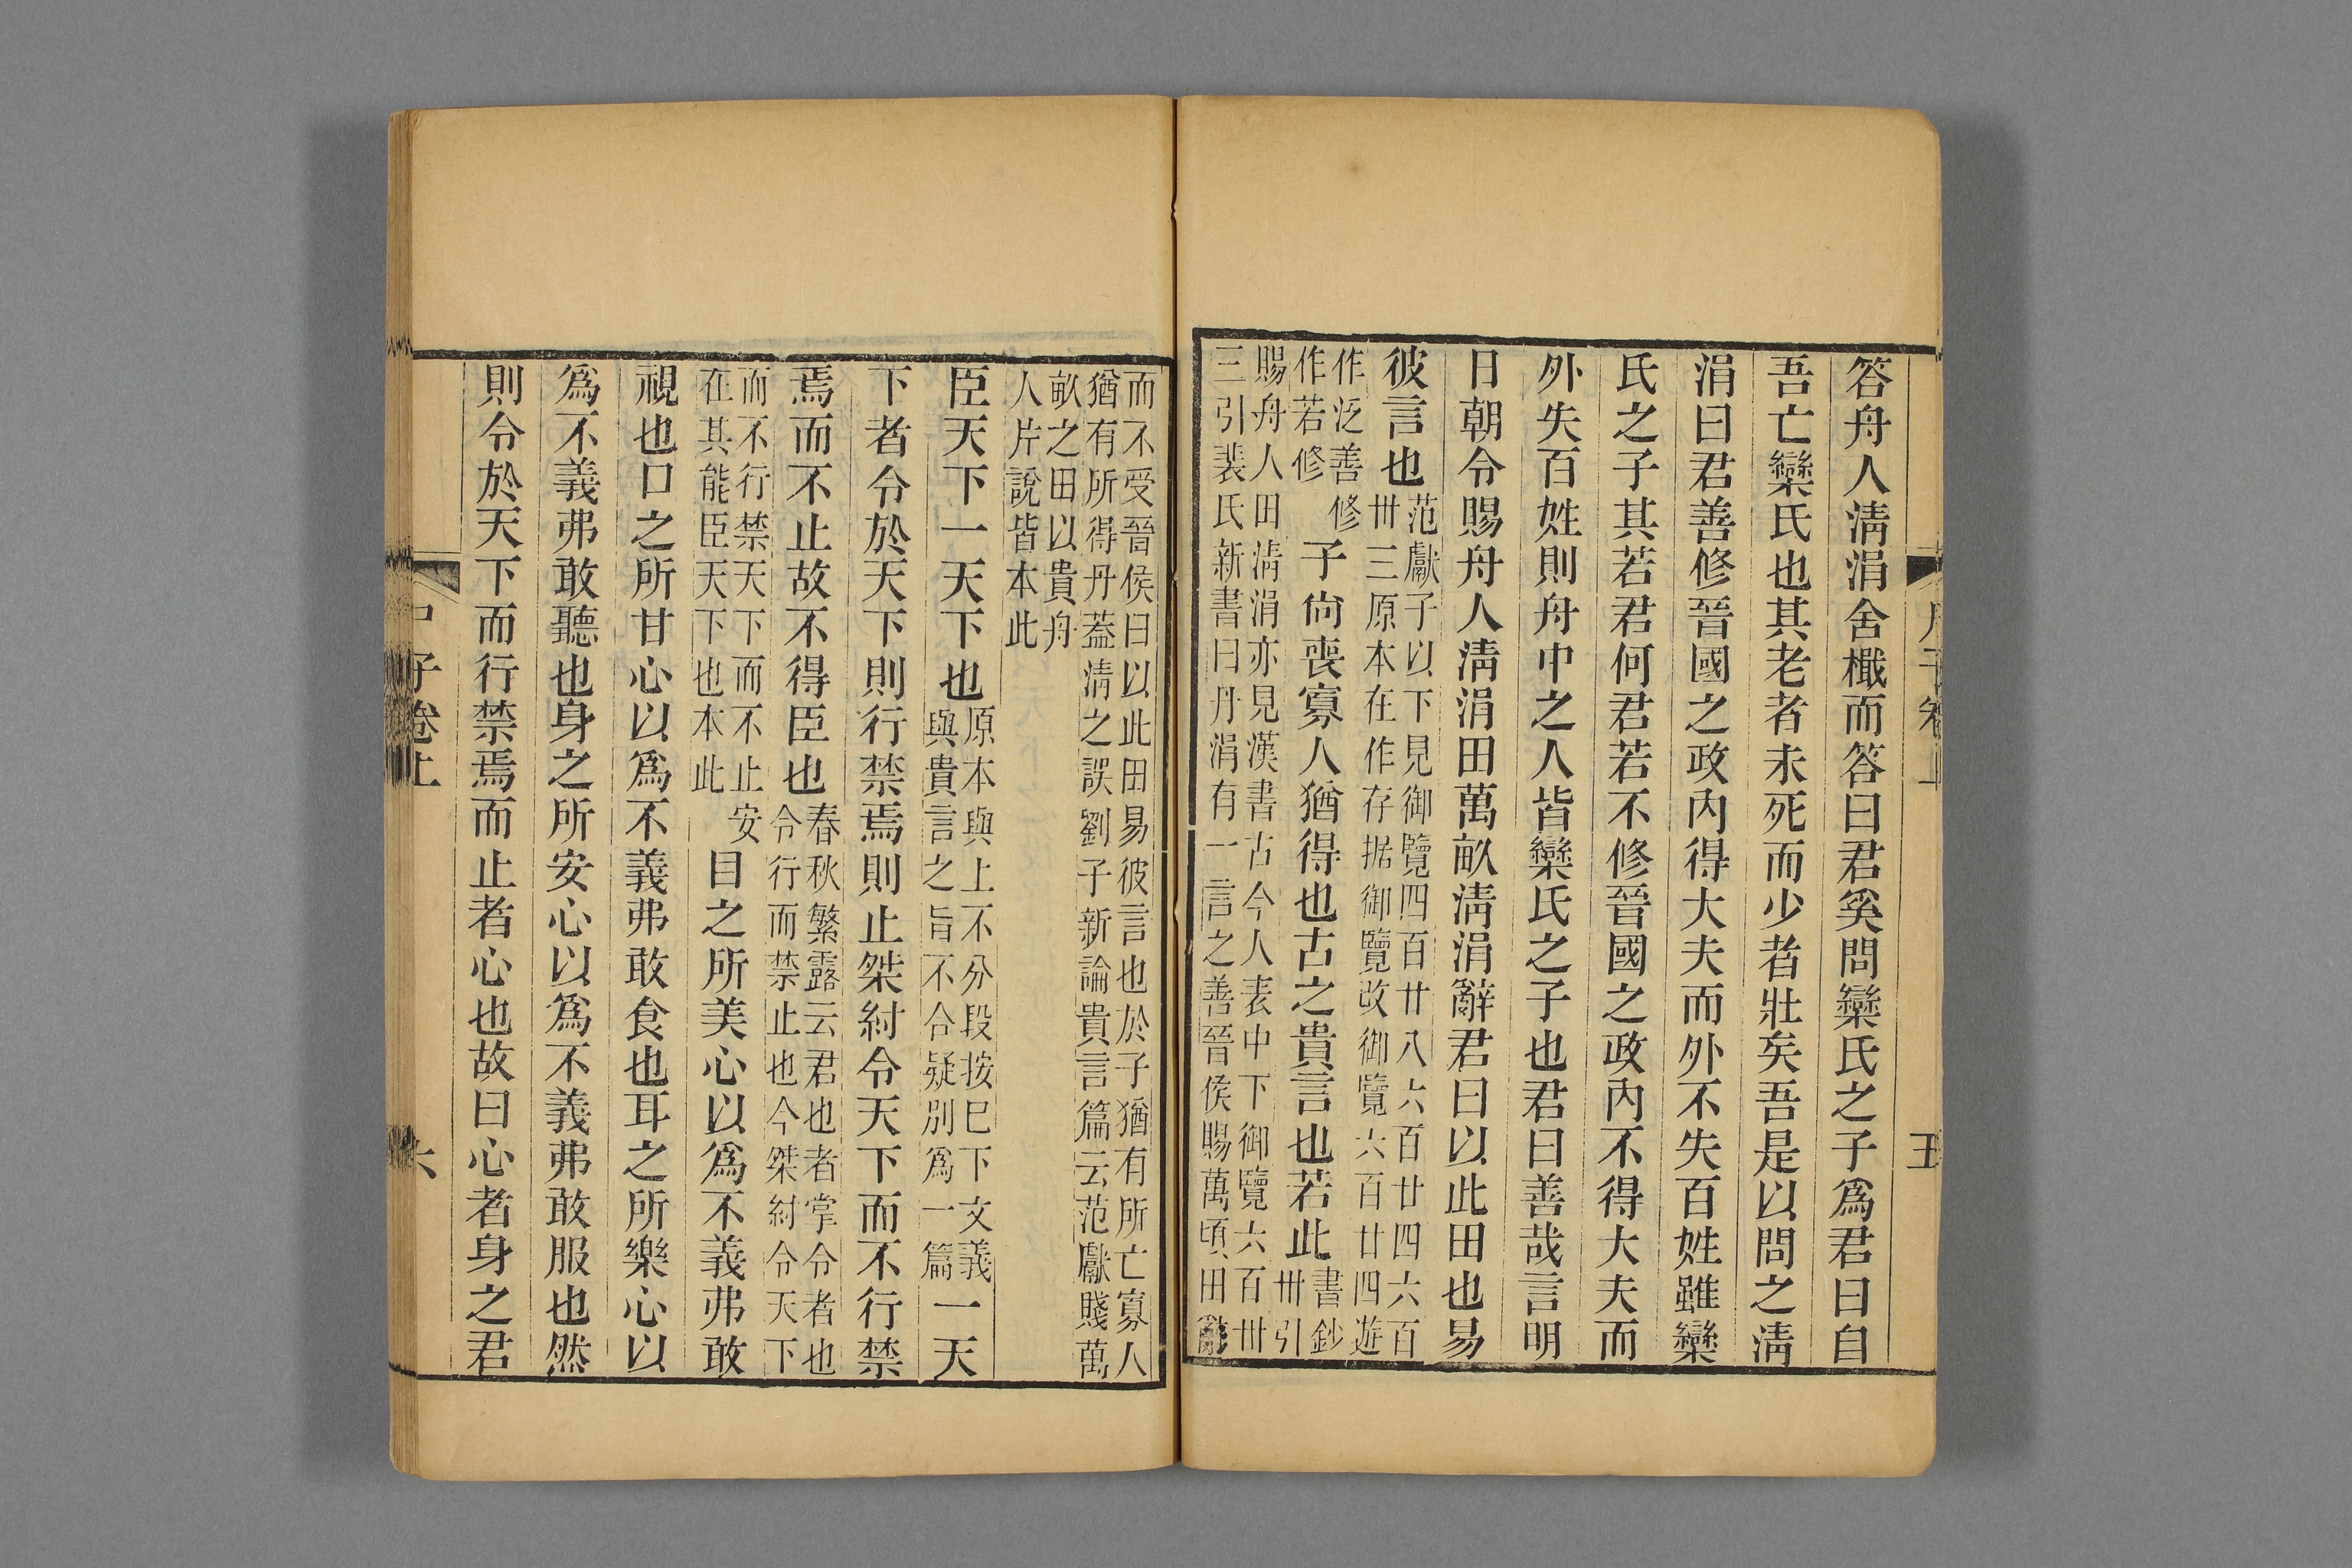 答舟人清涓舍檝而答曰君奚問欒氏之子爲君曰自
吾亡欒氏也其老者未死而少者壯矣吾是以問之清
涓曰君善修晉國之政內得大夫而外不失百姓雖欒
氏之子其若君何君若不修晉國之政內不得大夫而
外失百姓則舟中之人皆欒氏之子也君曰善哉言明
日朝令賜舟人清涓田萬畝清涓辭君曰以此田也易
彼言也
范獻子以下見御覽四百廿八六百廿四六百
卅三原本在作存据御覽改御覽六百廿四遊
作泛善修
作若修
子尙喪寡人猶得也古之貴言也若此
書鈔
卅引
賜舟人田清涓亦見漢書古今人表中下御覽六百卅
三引裴氏新書曰丹涓有一言之善晉侯賜萬頃田辭
五
而不受晉侯曰以此田易彼言也於子猶有所亡寡人
猶有所得丹蓋清之誤劉子新論貴言篇云范獻賤萬
畝之田以貴舟
人片說皆本此
臣天下一天下也
原本與上不分段按巳下文義
與貴言之旨不合疑別爲一篇
一天
下者令於天下則行禁焉則止桀紂令天下而不行禁
焉而不止故不得臣也
春秋繁露云君也者掌令者也
令行而禁止也今桀紂令天下
而不行禁天下而不止安
在其能臣天下也本此
目之所美心以爲不義弗敢
視也口之所甘心以爲不義弗敢食也耳之所樂心以
爲不義弗敢聽也身之所安心以爲不義弗敢服也然
則令於天下而行禁焉而止者心也故曰心者身之君
子卷上
六